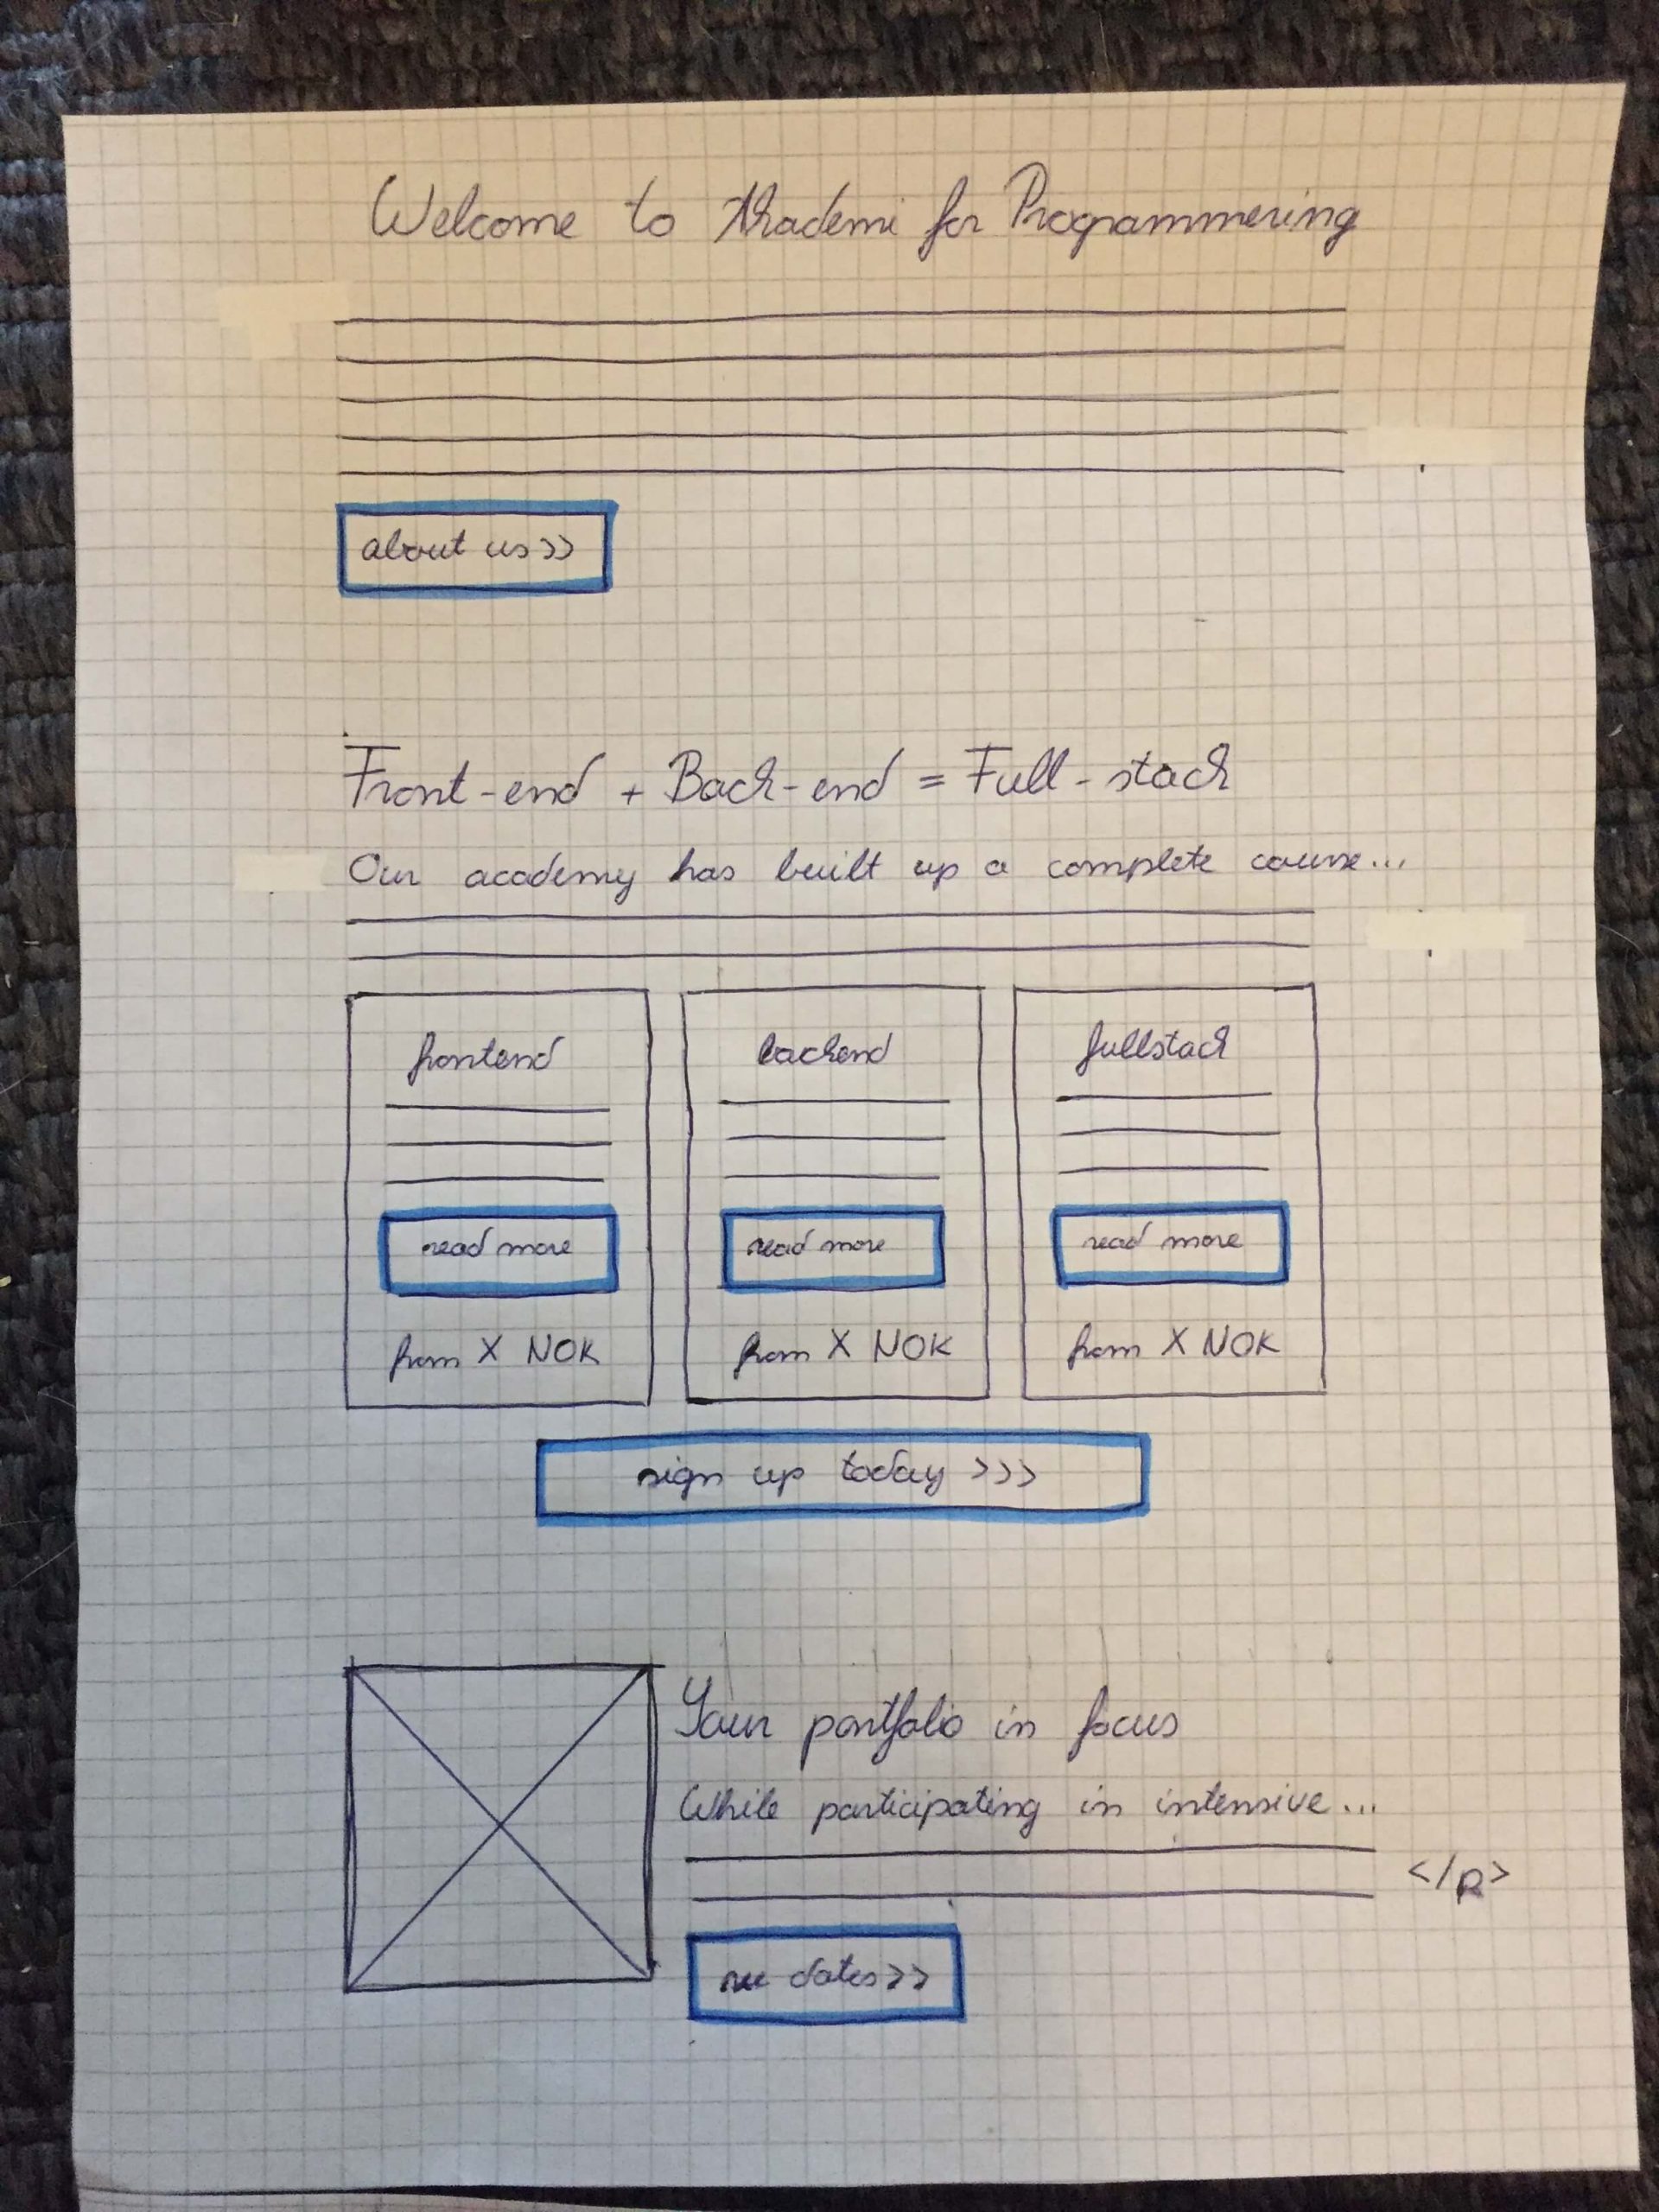 Welcome to Akademi for Programmering
about us>>
Front-end + Back-end = Full-stack
Our academy has built up a complete course...
frontend
backend
fullstack
read more
read more
read more
from X NOK
from X NOK
from X NOK
sign up today >>>
Your portfolio in focus
While participating in intensive...
</p>
see dates>>